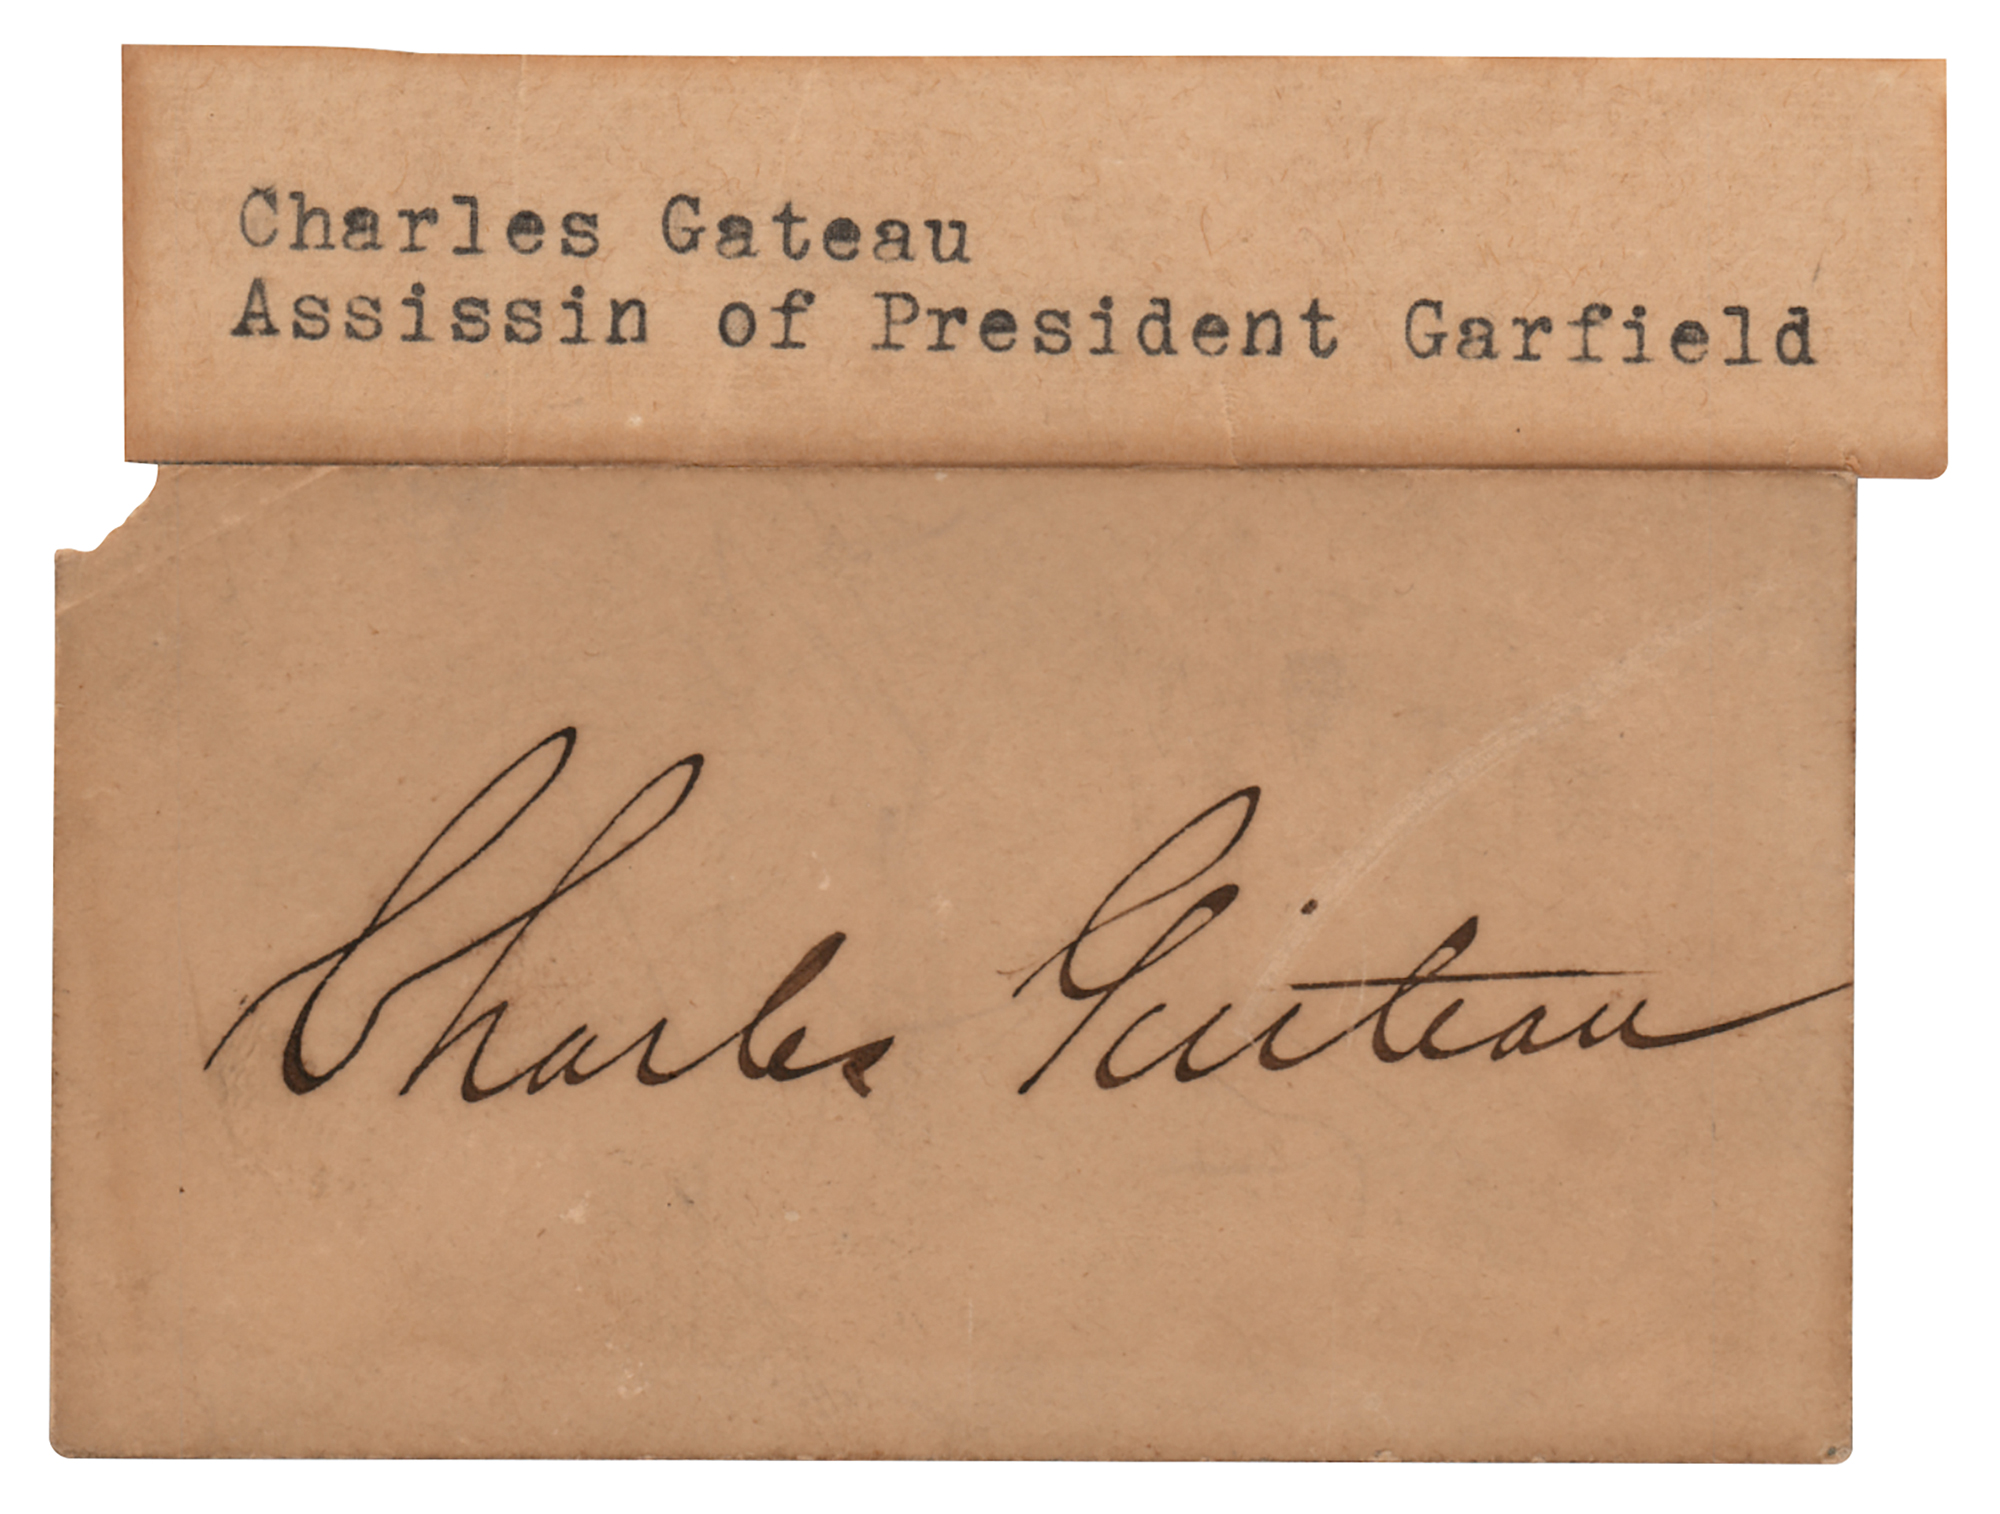 Charles Gateau
Assissin of President Garfield
Charles Guiteau